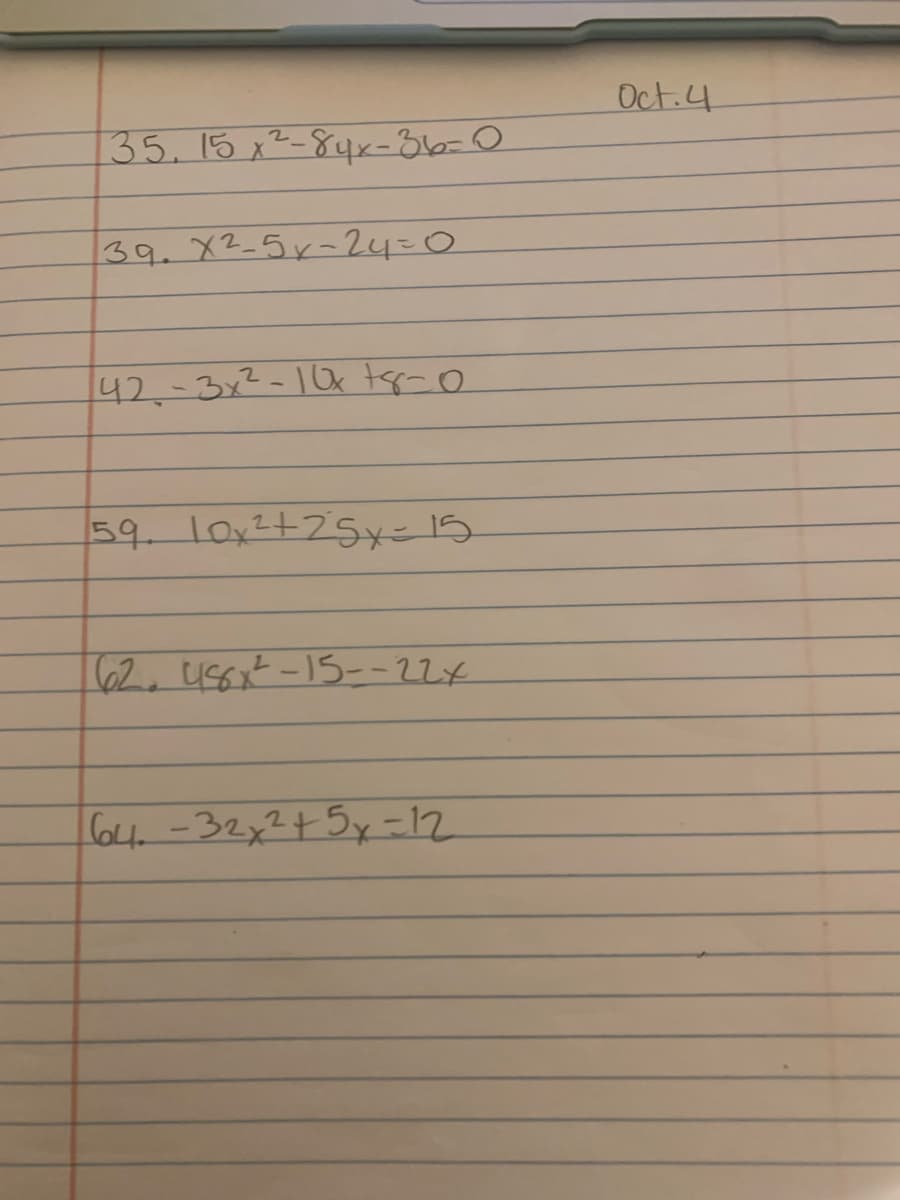 Oct. 4
35. 15x²-84x-36=0
39. x²-5x-24=0
42. -3x²-10x+8=0
59. 10x²+25x=15
62. 48x²-15=-22x
64. -32x²+5x=12